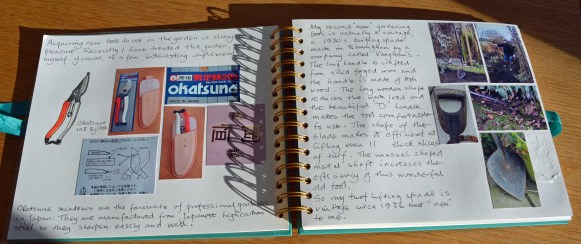 Acquiring new tools to use in the garden is always
pleasure. Recently I have treated the garden,
myself of course, to a few interesting implements
okatsune
Okatsune
103 8" / 200
Okatsune secateurs are the favourite of professional gardeners
in Japan. They are manufactured from Japanese high carbon
steel so they sharpen easily and well.
My second 'new' gardening
tool is actually a vintage,
a 1930's turfing spade
made in Birmingham by a
company called Vaughan's.
The long handle is crafted
from solid forged iron and
the handle is made of Ash
wood. The long wooden shape
reduces the work load and
the beautiful 'D' handle
makes the tool comfortable
to use. The shape of the
blade makes it efficient at
lifting even thick slices
of turf. The unusual shaped
metal shaft increases the
efficiency of this wonderful
old tool.
So my turf lifting spade is
vintage circa 1936 but "new"
to me.